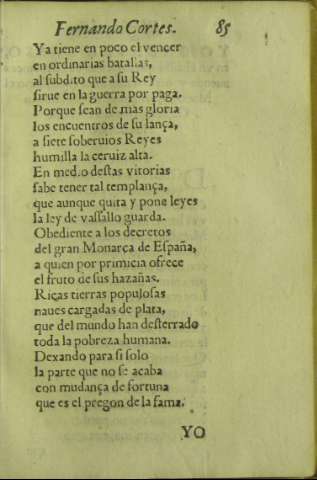 Fernando Cortes. 85
Ya tiene en poco el vencer
en ordinarias batallas,
al subdito que a su Rey
sirue en la guerra por paga.
Porque sean de mas gloria
los encuentros de su lança,
a siete soberuios Reyes
humilla la ceruiz alta.
En medio destas vitorias
sabe tener tal templança,
que aunque quita y pone leyes
la ley de vassallo guarda.
Obediente a los decretos
del gran Monarca de España,
a quien por primicia ofrece
el fruto de sus hazañas.
Ricas tierras populosas
naues cargadas de plata,
que del mundo han desterrado
toda la pobreza humana.
Dexando para si solo
la parte que no se acaba
con mudança de fortuna
que es el pregon de la fama.
YO